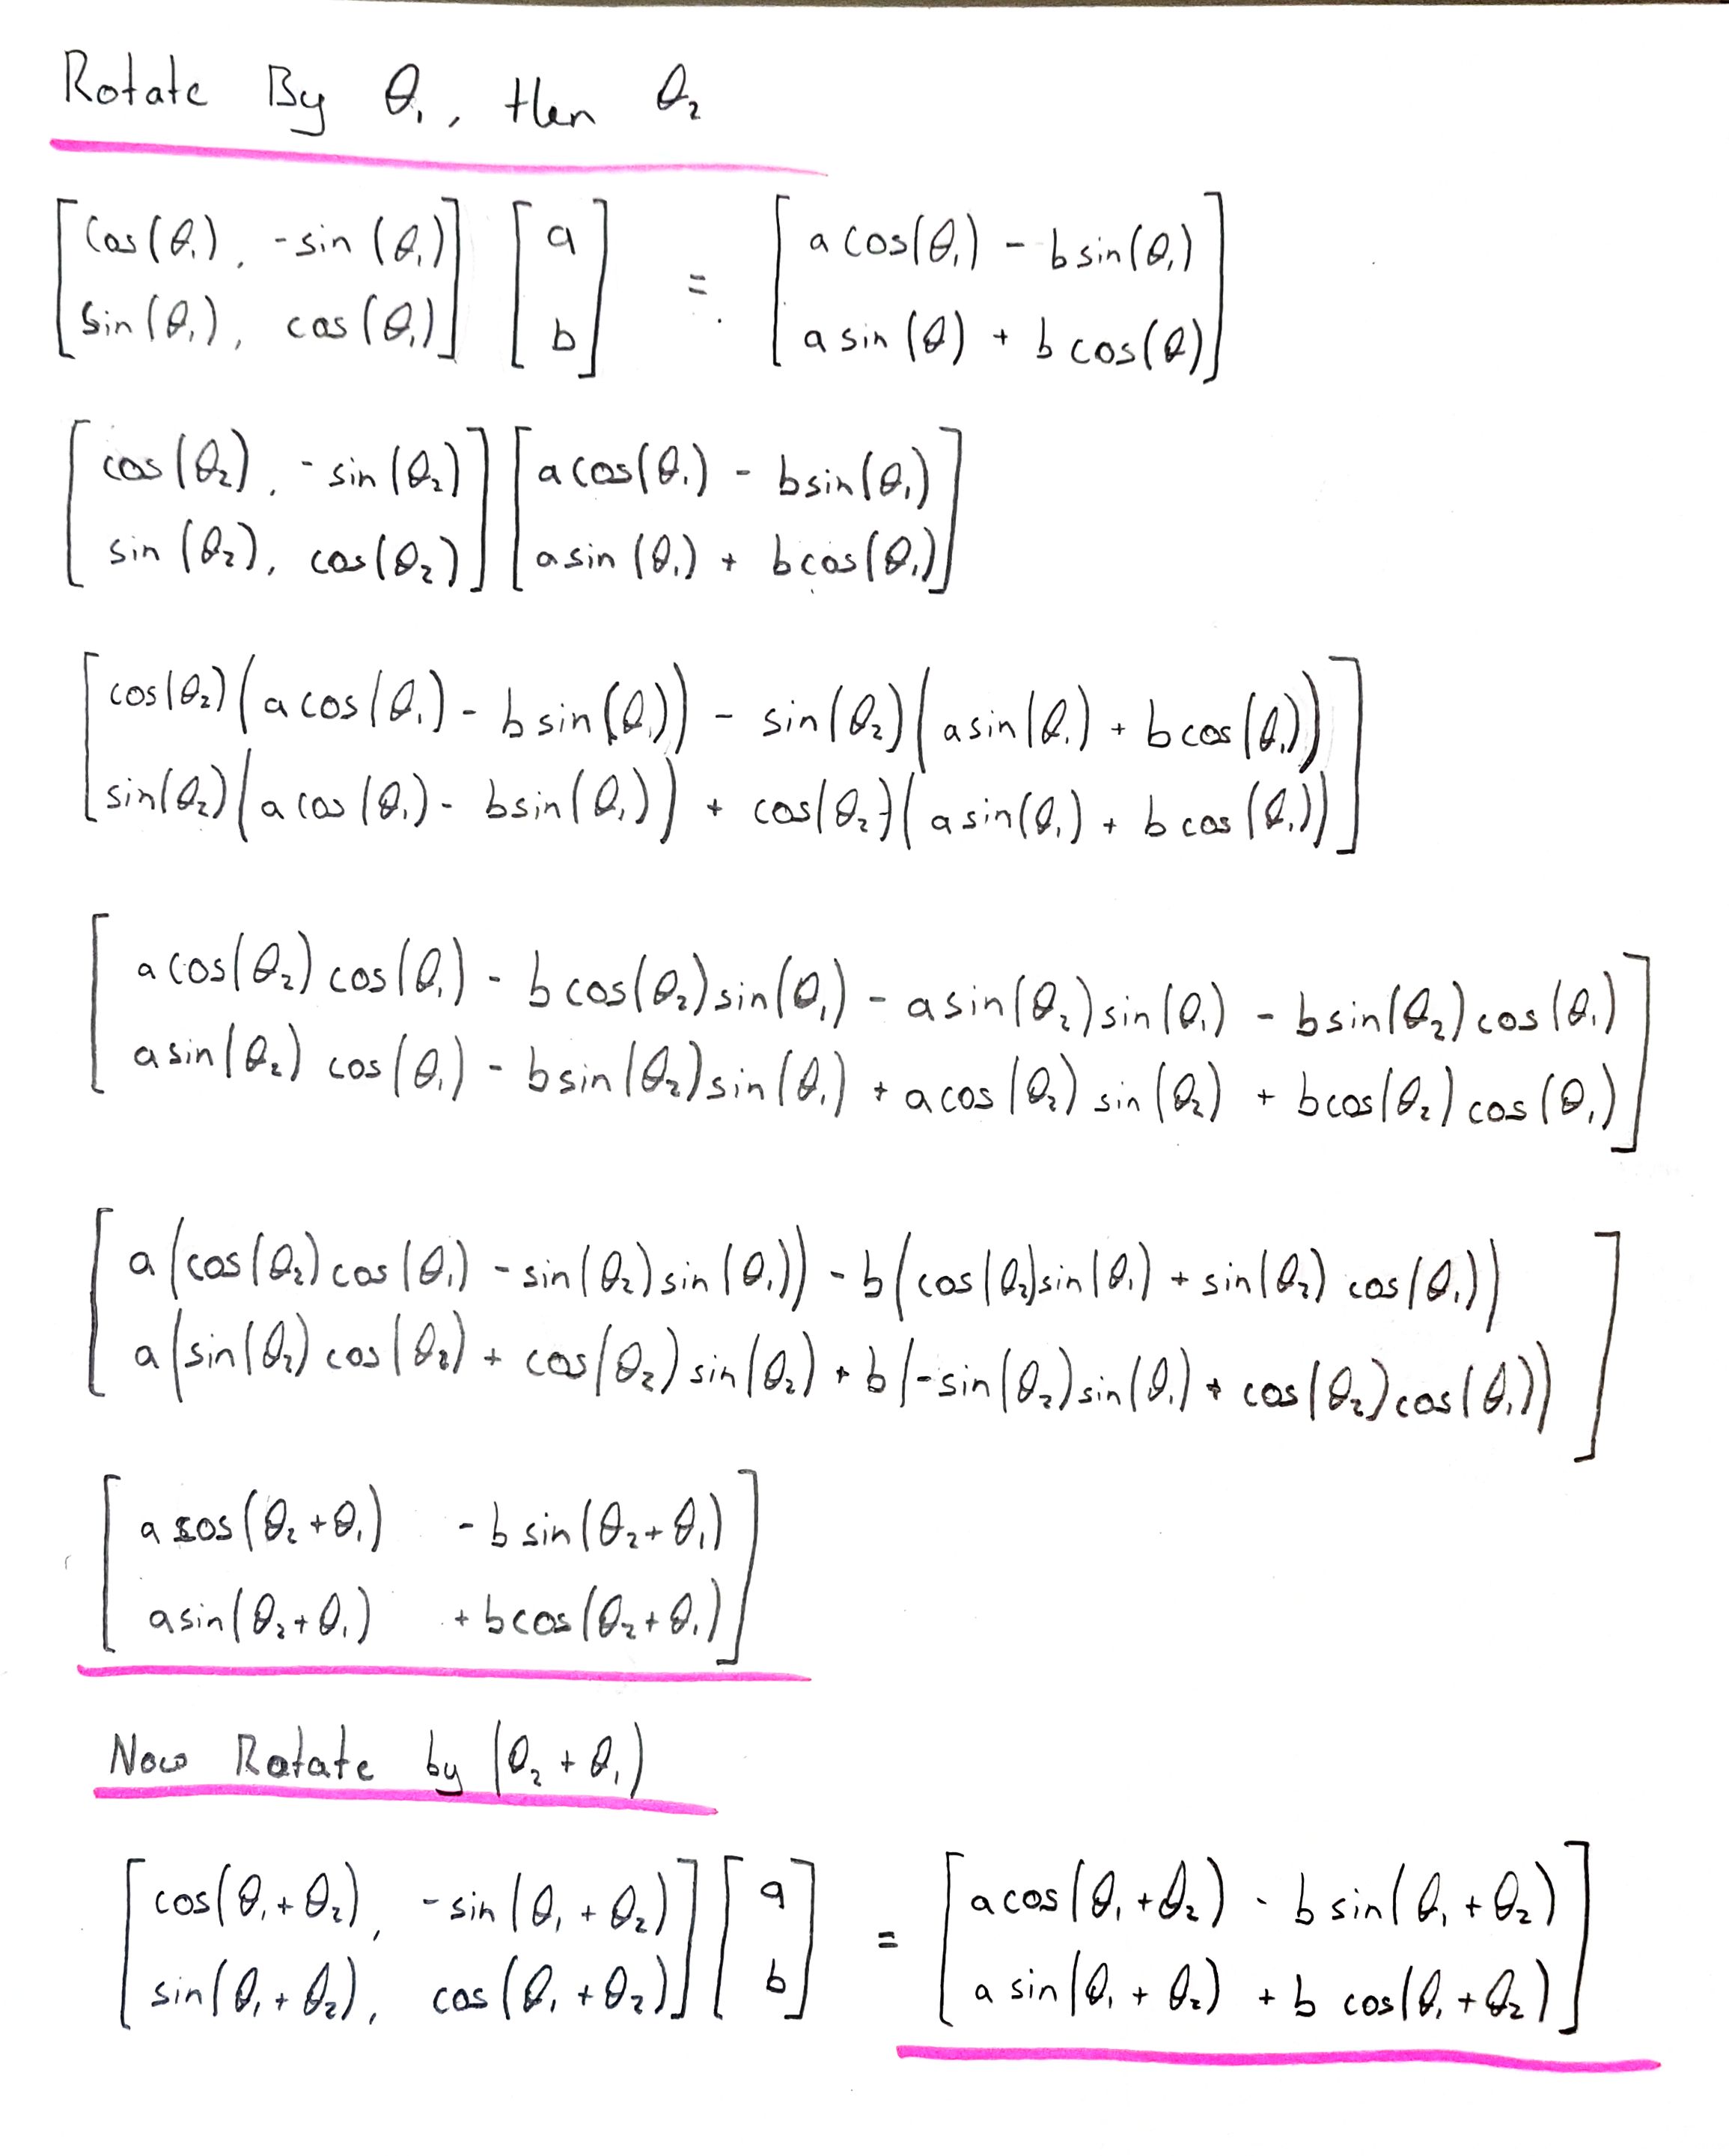 Rotate By θ₁, then θ₂
[cos(θ₁), -sin(θ₁)] [a] = [a cos(θ₁) - b sin(θ₁)]
[sin(θ₁), cos(θ₁)] [b] [a sin(θ) + b cos(θ)]
[cos(θ₂), -sin(θ₂)] [a cos(θ₁) - b sin(θ₁)]
[sin(θ₂), cos(θ₂)] [a sin(θ₁) + b cos(θ₁)]
[cos(θ₂)(a cos(θ₁) - b sin(θ₁)) - sin(θ₂)(a sin(θ₁) + b cos(θ₁))]
[sin(θ₂)(a cos(θ₁) - b sin(θ₁)) + cos(θ₂)(a sin(θ₁) + b cos(θ₁))]
[a cos(θ₂) cos(θ₁) - b cos(θ₂) sin(θ₁) - a sin(θ₂) sin(θ₁) - b sin(θ₂) cos(θ₁)]
[a sin(θ₂) cos(θ₁) - b sin(θ₂) sin(θ₁) + a cos(θ₂) sin(θ₂) + b cos(θ₂) cos(θ₁)]
[a(cos(θ₂) cos(θ₁) - sin(θ₂) sin(θ₁)) - b(cos(θ₂) sin(θ₁) + sin(θ₂) cos(θ₁))]
[a(sin(θ₂) cos(θ₂) + cos(θ₂) sin(θ₂) + b(-sin(θ₂) sin(θ₁) + cos(θ₂) cos(θ₁))]
[a cos(θ₂ + θ₁) - b sin(θ₂ + θ₁)]
[a sin(θ₂ + θ₁) + b cos(θ₂ + θ₁)]
Now Rotate by (θ₂ + θ₁)
[cos(θ₁ + θ₂), -sin(θ₁ + θ₂)] [a] = [a cos(θ₁ + θ₂) - b sin(θ₁ + θ₂)]
[sin(θ₁ + θ₂), cos(θ₁ + θ₂)] [b] [a sin(θ₁ + θ₂) + b cos(θ₁ + θ₂)]